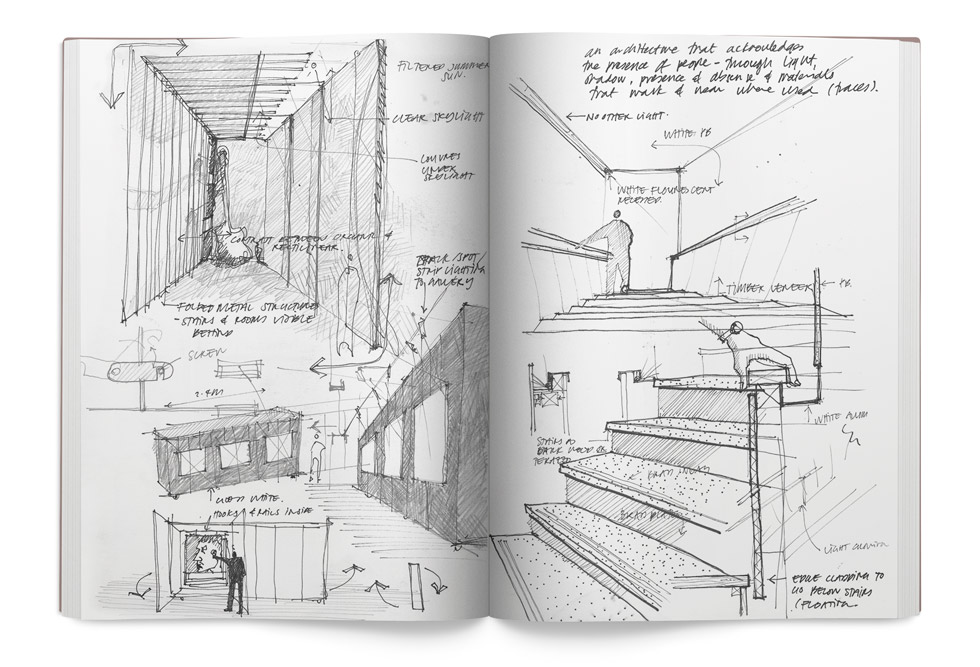 FILTERED SUMMER
SUN.
CLEAR SKYLIGHT
LOUVRES
UNDER
SKYLIGHT
CONTRAST BETWEEN CIRCULAR &
RECTILINEAR.
TRACK/SPOT/
STRIP LIGHTING
TO GALLERY
FOLDED METAL STRUCTURES
- STAIRS & ROOMS VISIBLE
BEHIND
SCREW
2.4M
GLOSS WHITE.
HOOKS & RAILS INSIDE
an architecture that acknowledges
the presence of people - through light,
shadow, presence & absence & materials
that mark & wear where used (traces).
NO OTHER LIGHT.
WHITE PB
WHITE FLOURESCENT
RECESSED.
TIMBER VENEER
PB.
WHITE ALUM
STAIRS AS
DARK WOOD OR
TERAZZO
BRASS INLAY
LIGHT
EDGE CLADDING TO
GO BELOW STAIRS
(FLOATING